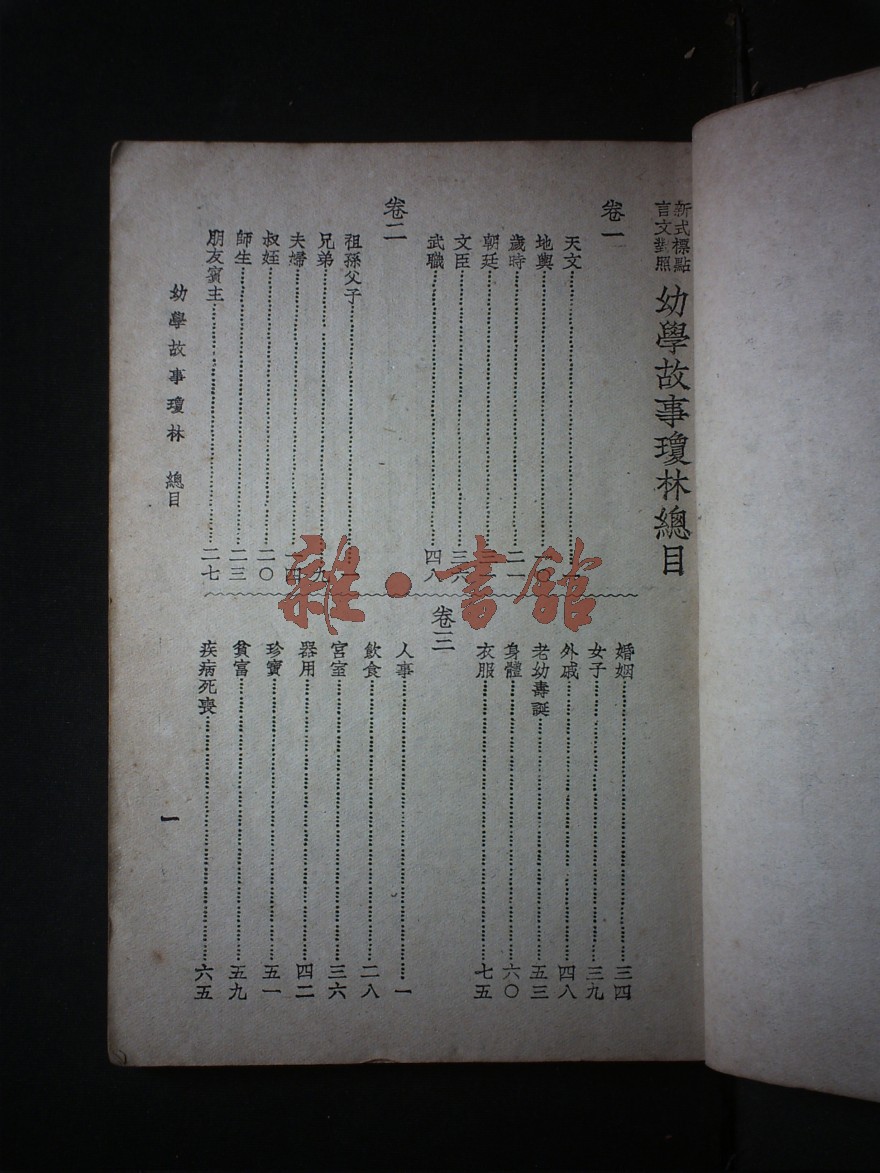 新式標點
言文對照
幼學故事瓊林總目
卷一
天文……一
地輿……一〇
歲時……二一
朝廷……三一
文臣……三六
武職……四八
卷二
祖孫父子……一
兄弟……九
夫婦……一四
叔姪……二〇
師生……二三
朋友賓主……二七
婚姻……三四
女子……三九
外戚……四八
老幼壽誕……五三
身體……六〇
衣服……七五
卷三
人事……一
飲食……二八
宮室……三六
器用……四二
珍寶……五一
貧富……五九
疾病死喪……六五
幼學故事瓊林 總目
一
雜·書館